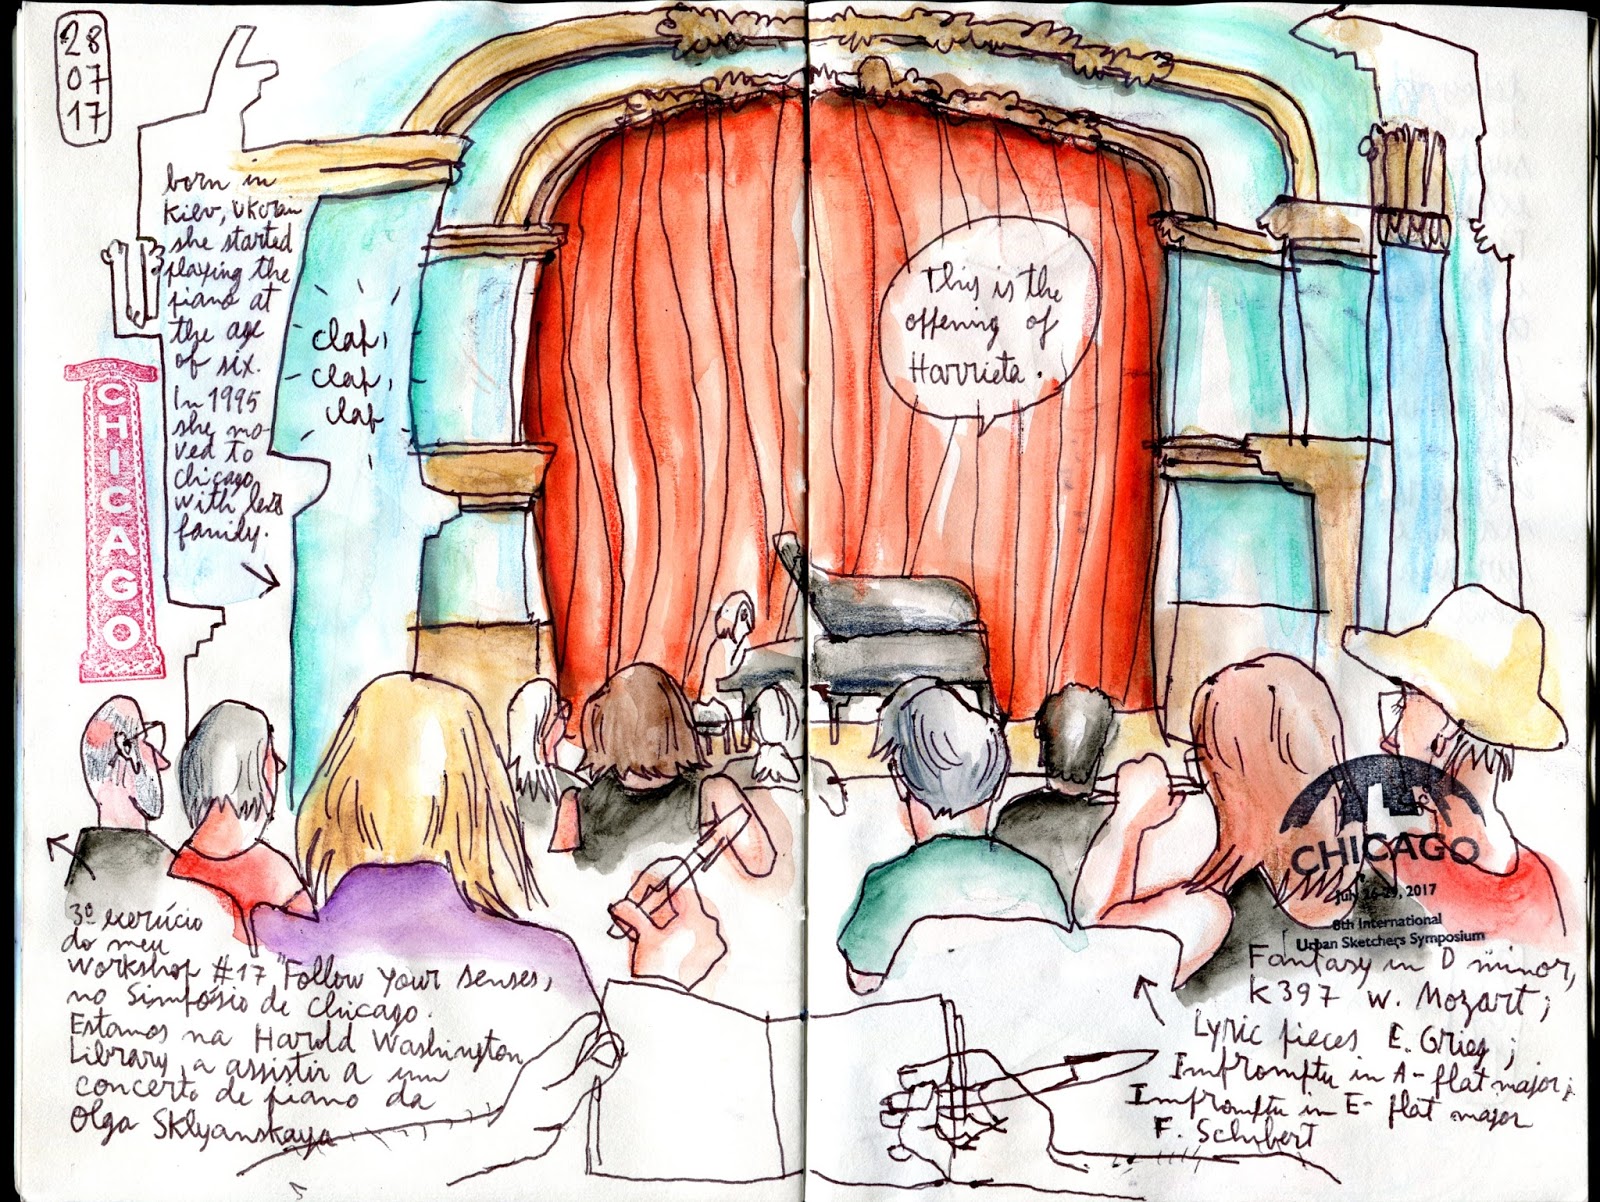 28
07
17
born in
Kiev, Ukrain
she started
playing the
piano at
the age
of six.
In 1995
she mo-
ved to
chicago
with her
family.
CHICAGO
clap,
clap,
clap
This is the
offening of
Harrieta.
3º exercício
do meu
Workshop #17 "Follow Your senses,
no Simpósio de Chicago.
Estamos na Harold Washington
Library, a assistir a um
concerto de piano da
Olga Sklyanskaya
CHICAGO
July 26-29, 2017
8th International
Urban Sketchers Symposium
Fantasy in D minor,
K397 W. Mozart;
Lyric pieces E. Grieg;
Impromptu in A-flat major;
Impromptu in E-flat major
F. Schubert